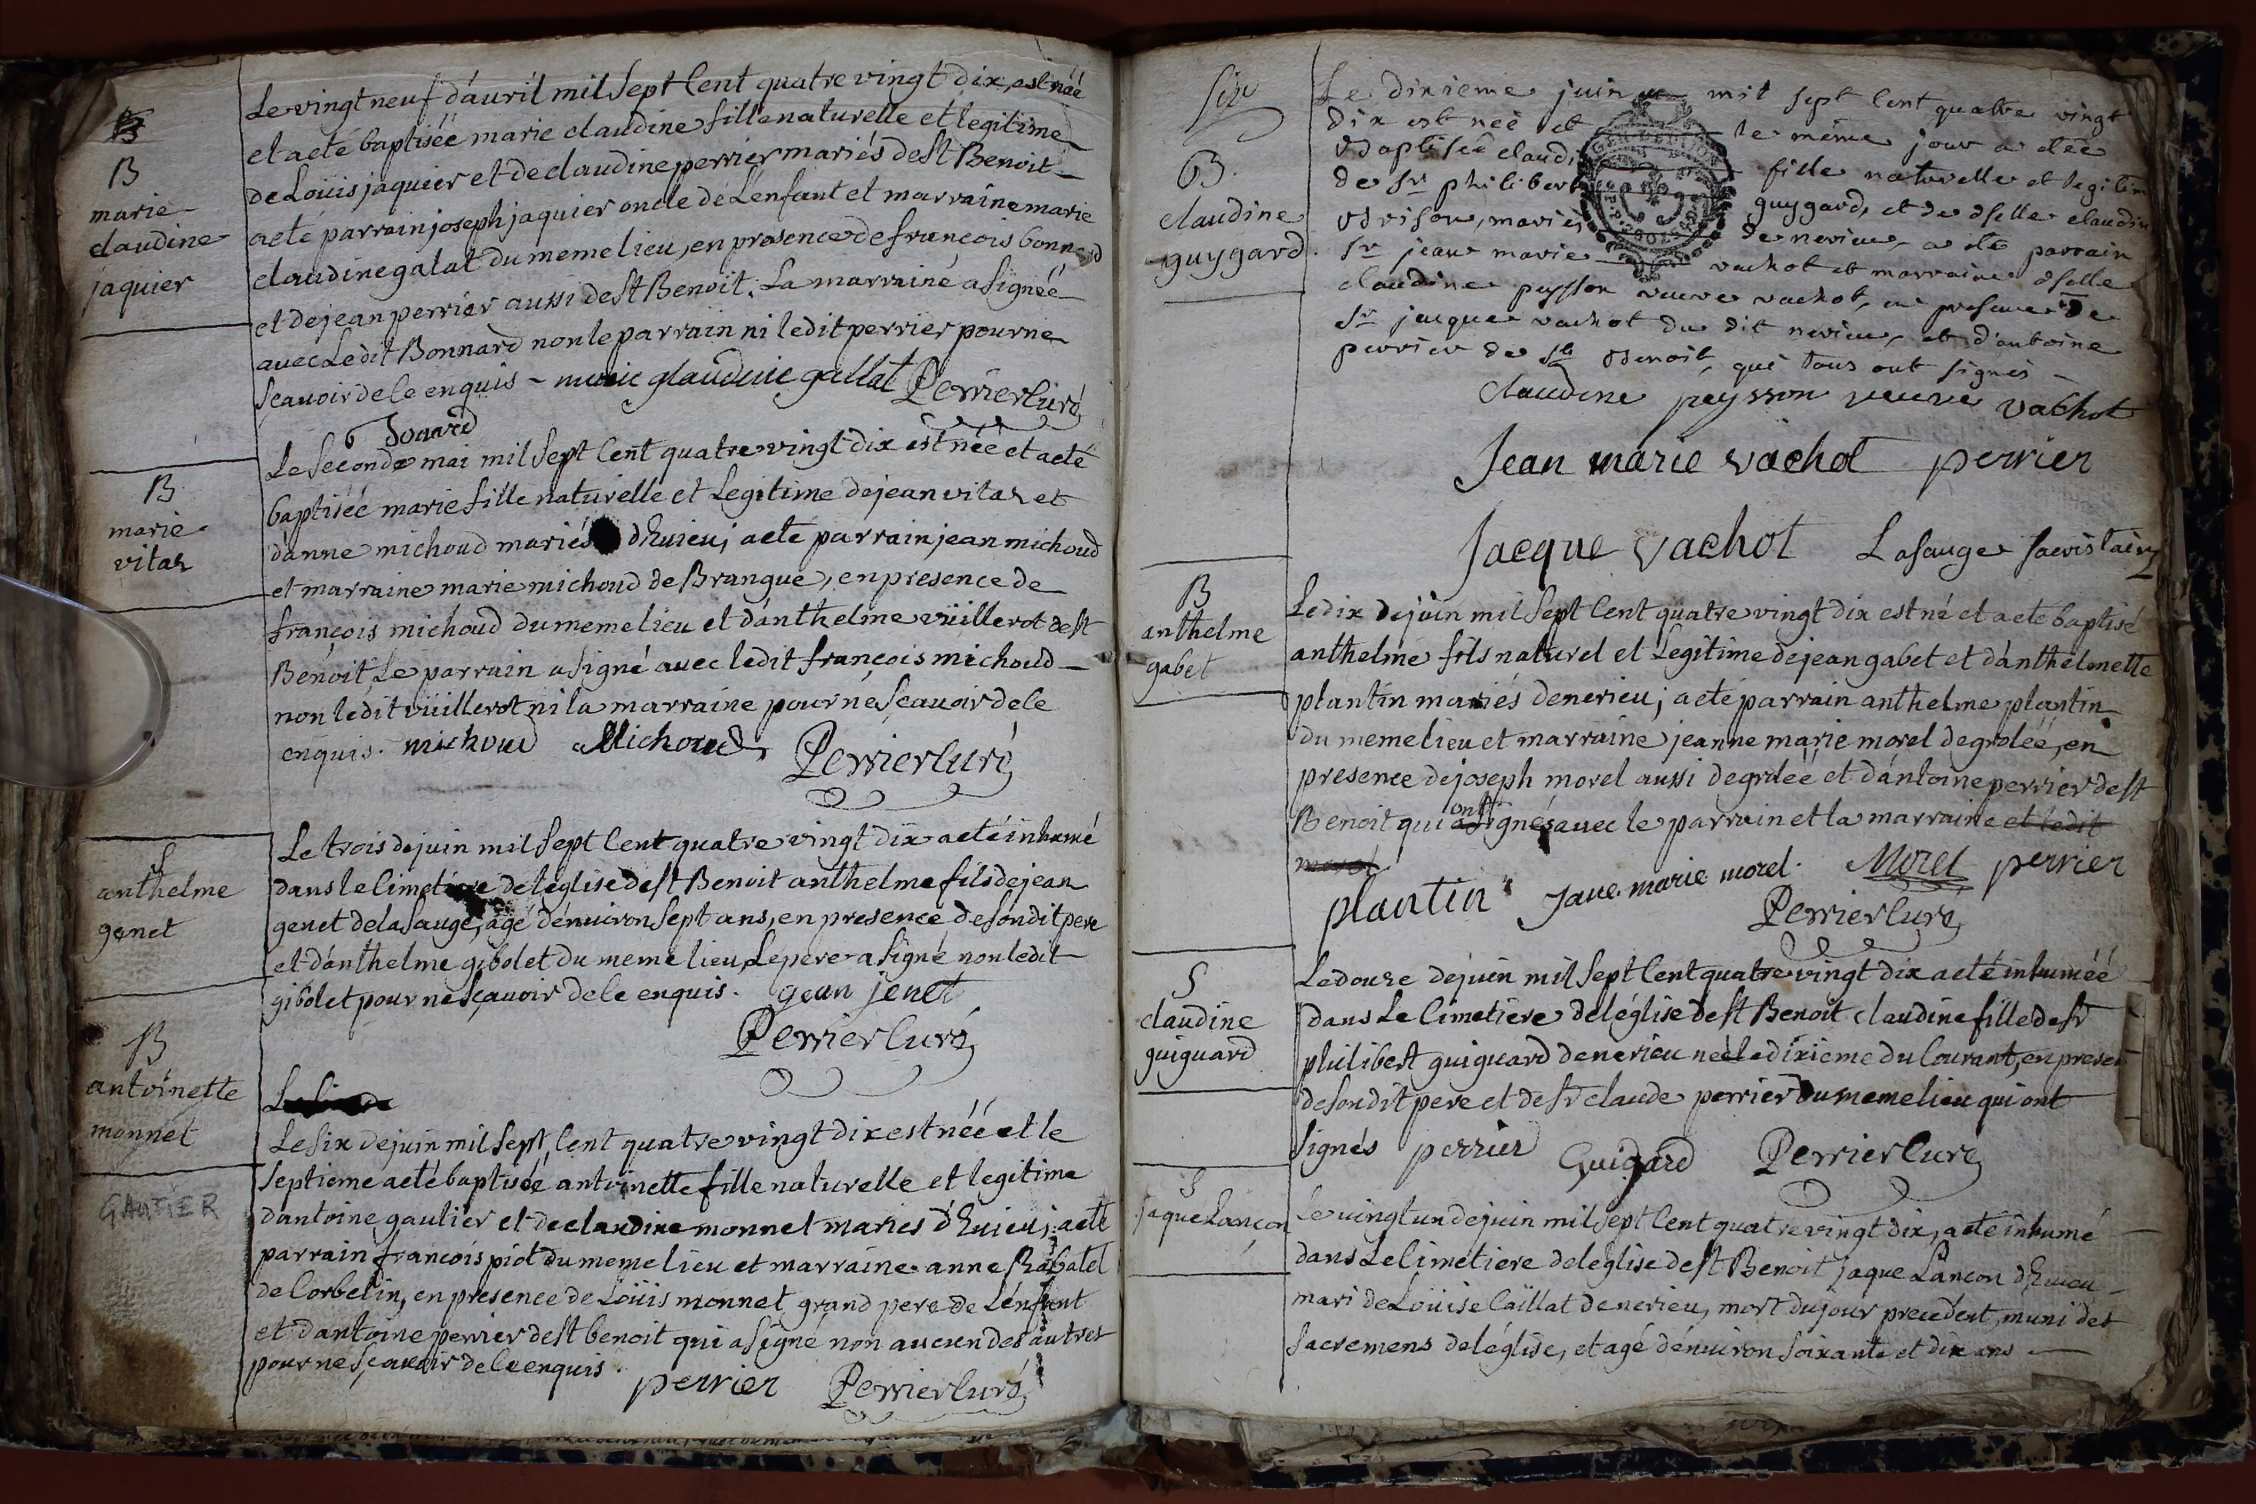 B
B
marie
claudine
jaquier
Le vingt neuf d'avril mil sept cent quatre vingt dix, est néé
et a eté baptiséé marie claudine fille naturelle et legitime
de Loüis jaquier et de claudine perrier mariés de st Benoit
a eté parrain joseph jaquier oncle de L'enfant et marraine marie
claudine galat du meme lieu, en presence de françois bonnard
et de jean perrier aussi de st Benoit. La marraine a signéé
avec Ledit Bonnard non le parrain ni ledit perrier pour ne
scavoir de ce enquis - marie glaudine gallat Perrier Curé
Bonard
B
marie
vitaz
Le second mai mil sept cent quatre vingt dix est néé et a eté
baptiséé marie fille naturelle et Legitime de jean vitaz et
d'anne michoud mariés d'huieu; a eté parrain jean michoud
et marraine marie michoud de Brangue, en presence de
françois michoud du meme lieu et d'anthelme vüillerot de st
Benoit, Le parrain a signé avec ledit françois michoud
non ledit vüillerot ni la marraine pour ne scavoir de ce
enquis. michoud Michoud Perrier Curé
S
anthelme
genet
Le trois de juin mil sept cent quatre vingt dix a eté inhumé
dans le cimetiere de l'église de st Benoit anthelme fils de jean
genet de la sauge, agé d'environ sept ans, en presence de son dit pere
et d'anthelme gibolet du meme lieu, Le pere a signé non ledit
gibolet pour ne sçavoir de ce enquis. gean jenet
Perrier Curé
B
antoinette
monnet
GAUTIER
Le six de juin mil sept cent quatre vingt dix est néé et le
septieme a eté baptiséé antoinette fille naturelle et legitime
d'antoine gautier et de claudine monnet mariés d'huieu; a eté
parrain françois piot du meme lieu et marraine anne Rabatel
de Corbelin, en presence de Loüis monnet grand pere de L'enfant
et d'antoine perrier de st benoit qui a signé non aucun des autres
pour ne sçavoir de ce enquis.
perrier Perrier Curé
six
B.
claudine
guygard.
Le dixieme juin mil sept cent quatre vingt
dix est neé et le même jour a etéé
Bdaptiseé claudi fille naturelle et legitim
de sr philibert guygard, et de dselle claudin
Brison, mariés de nerieu, a été parrain
sr jean marie vachot et marraine dselle
claudine peysson veuve vachot, en presence de
sr jacque vachot du dit nerieu, et d'antoine
perrier de st Benoit, qui tous ont signés
claudine peysson veuve vachot
Jean marie vachot perrier
Jacque vachot Lasauge sacristain
B
anthelme
gabet
Le dix de juin mil sept cent quatre vingt dix est né et a eté baptisé
anthelme fils naturel et Legitime de jean gabet et d'anthelmette
plantin mariés de nerieu; a eté parrain anthelme plantin
du meme lieu et marraine jeanne marie morel de groléé, en
presence de joseph morel aussi de groléé et d'antoine perrier de st
Benoit qui ont signés avec le parrain et la marraine et ledit
morel
plantin Jane marie morel. Morel perrier
Perrier Curé
S
claudine
guiguard
Le douze de juin mil sept cent quatre vingt dix a eté inhuméé
dans Le cimetiere de l'église de st Benoit claudine fille de sr
philibert guiguard de nerieu néé le dixieme du courant, en presen
de son dit pere et de sr claude perrier du meme lieu qui ont
signés perrier Guigard Perrier Curé
S
jaque Lançon
Le vingt un de juin mil sept cent quatre vingt dix, a eté inhumé
dans Le cimetiere de l'église de st Benoit jaque Lançon d'huieu
mari de Loüise Caillat de nerieu, mort du jour precedent, muni des
sacremens de l'église, et agé d'environ soixante et dix ans